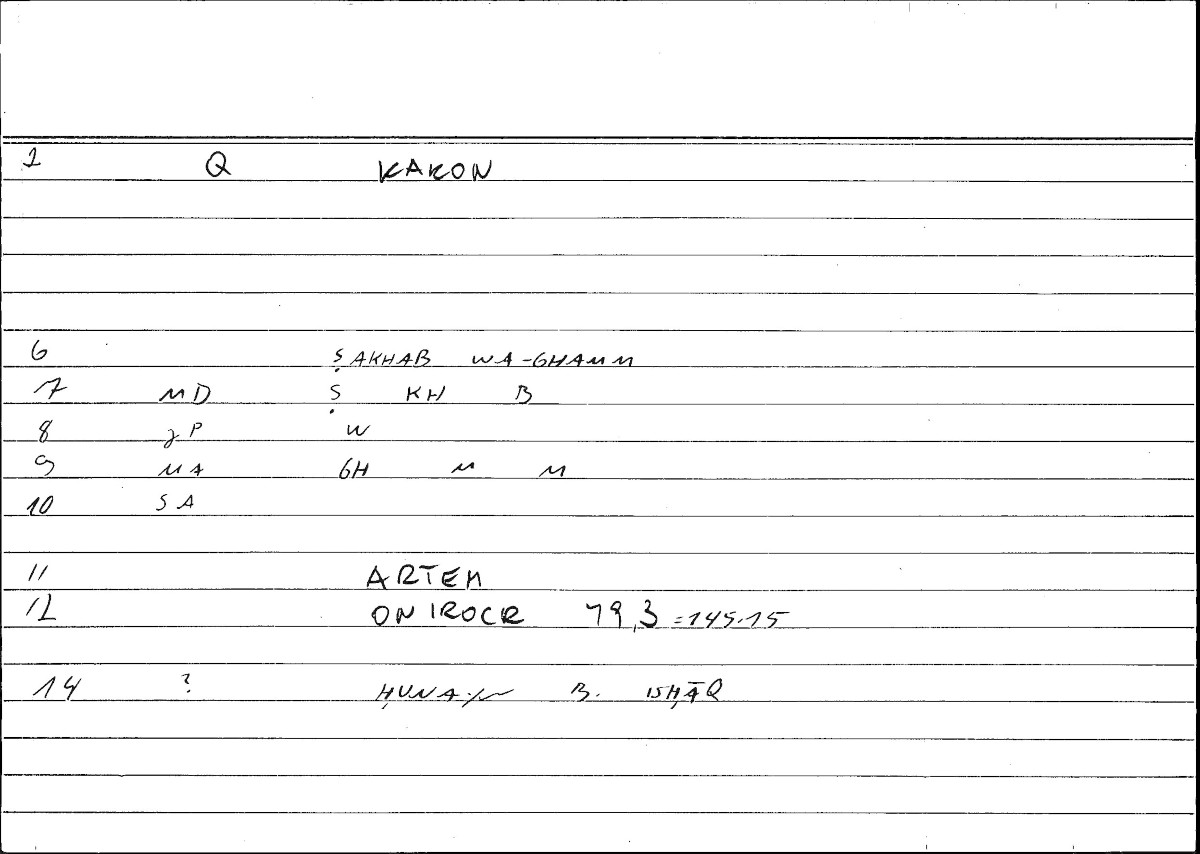 1 Q KAKON
6 ṢAKHAB WA-GHAMM
7 MD Ṣ KH B
8 γP W
9 MA GH M M
10 SA
11 ARTEM
12 ONIROCR 79,3 =145.15
14 ? ḤUNAYN B. ISḤĀQ